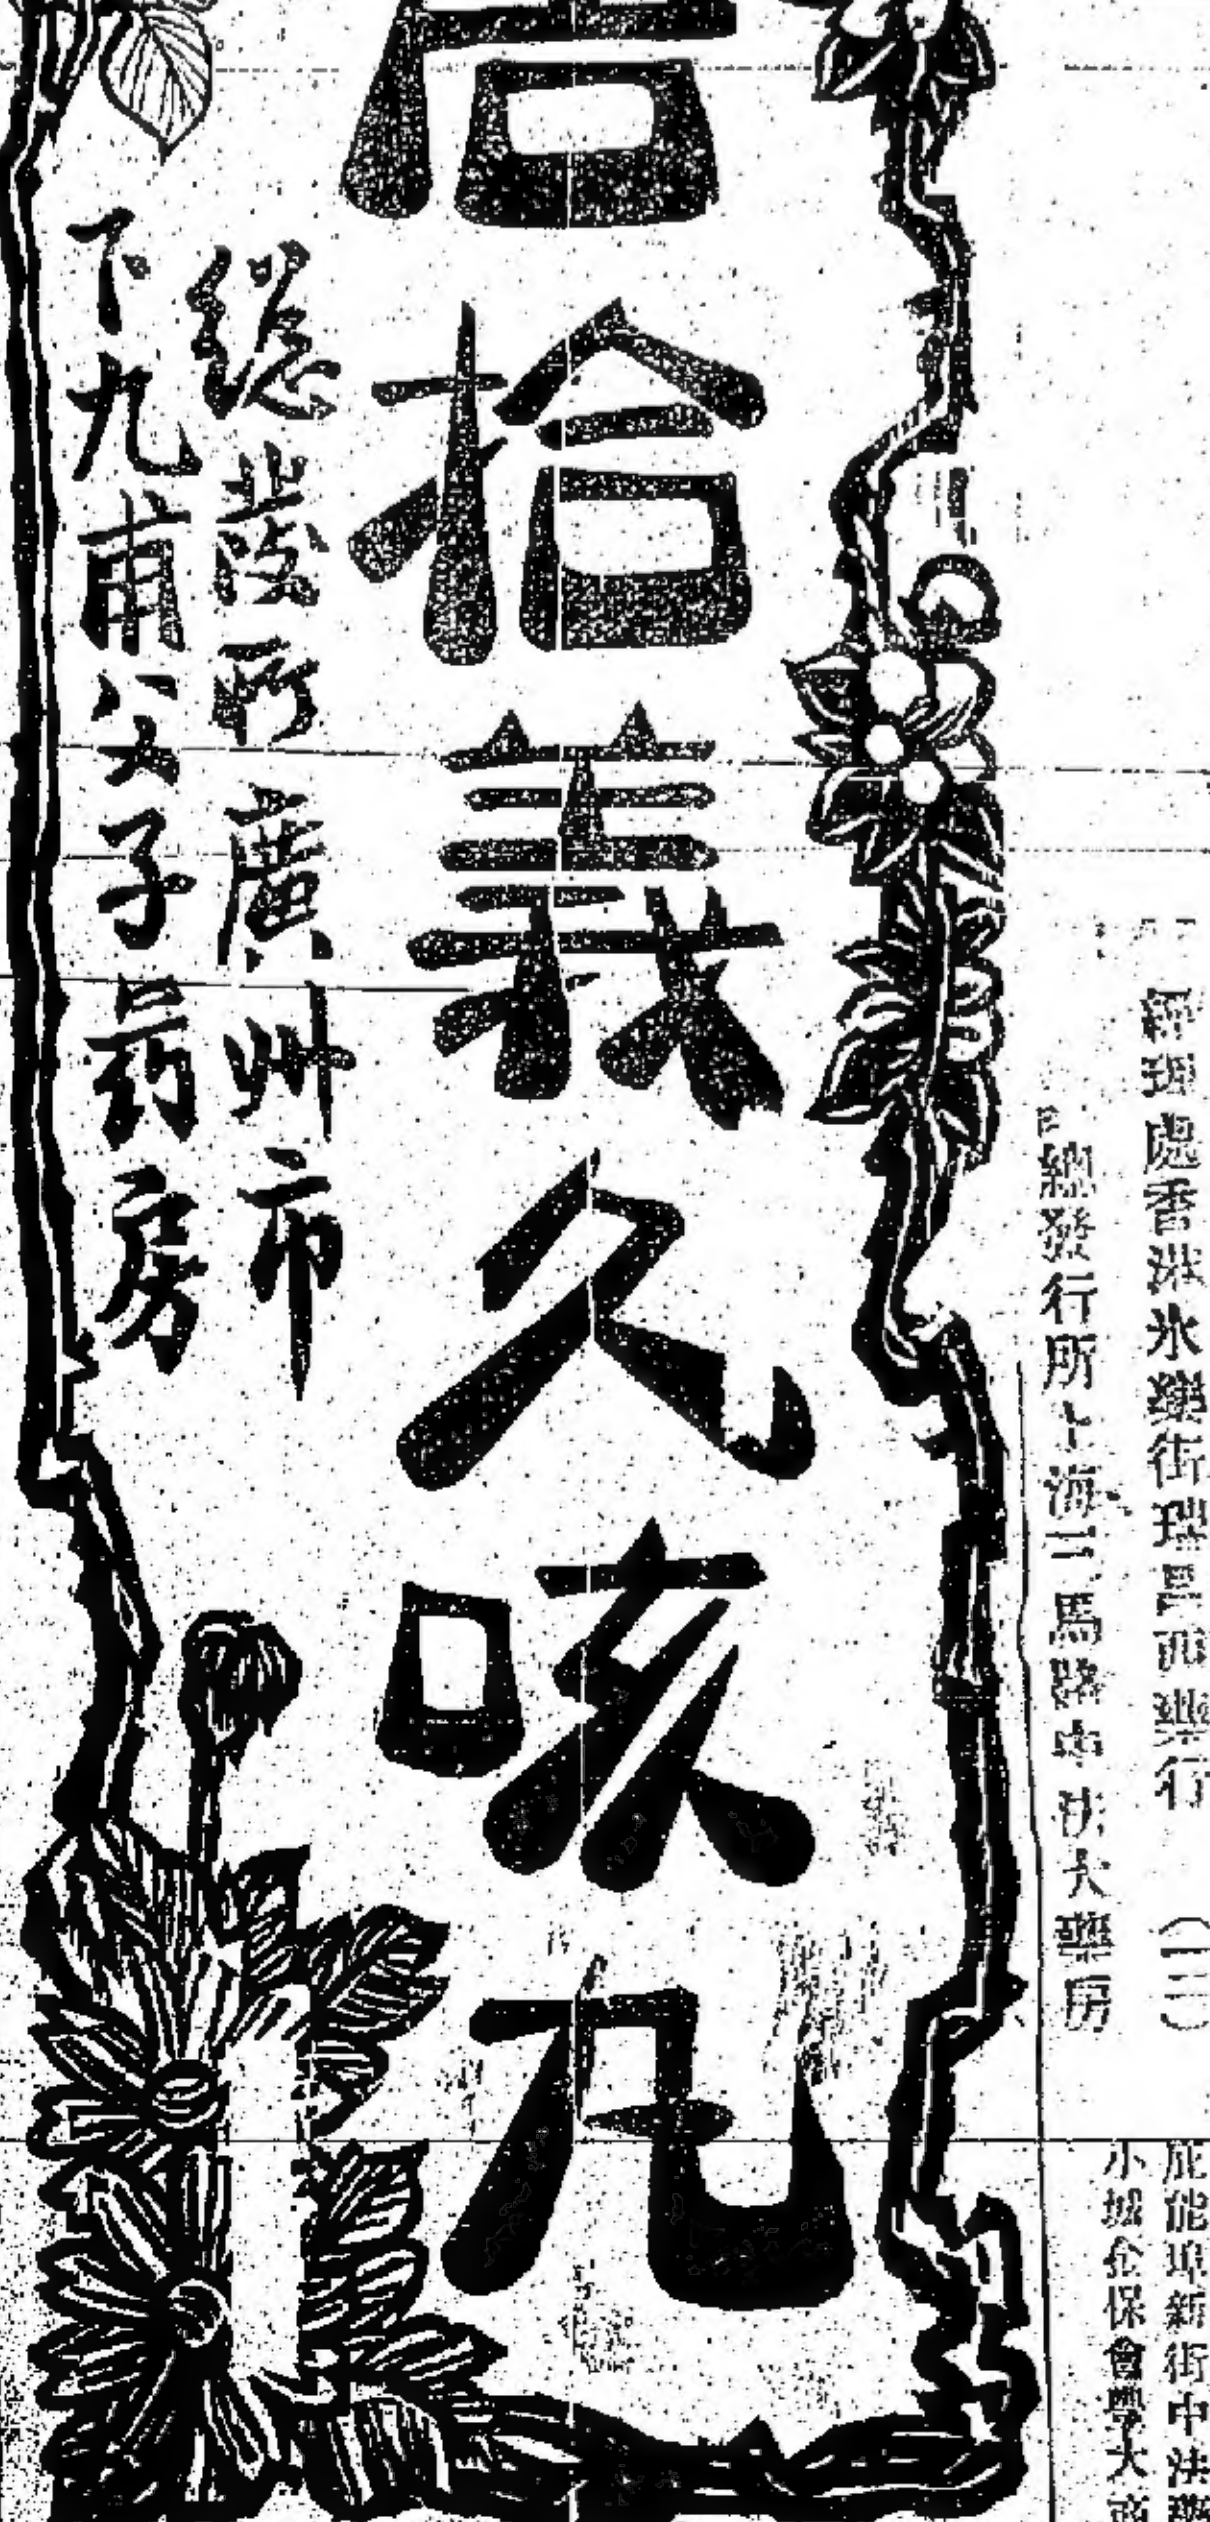 經理處香港永樂街瑞昌西藥行 (二)
總發行所上海三馬路中法大藥房
埠新街中法藥
小城金保會學大
后拾義久咳丸
總發所廣州市
下九甫公大子药房